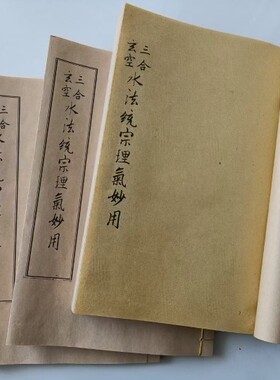 三合玄空水法統宗理氣妙用
三合玄空水法統宗理氣妙用
三合玄空水法